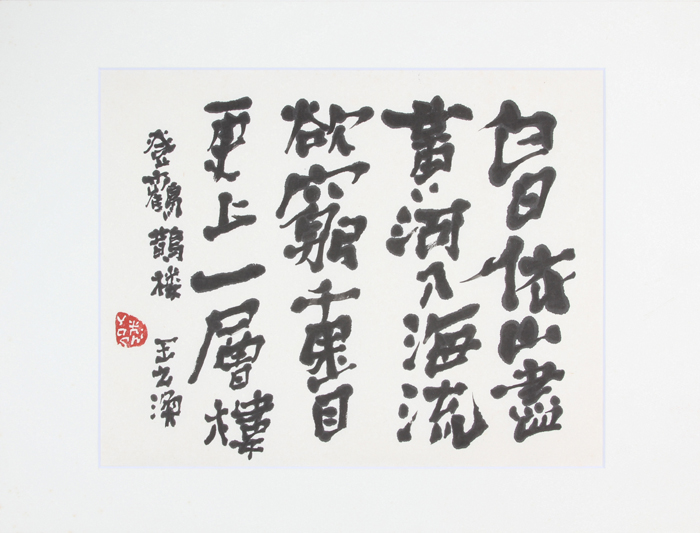 白日依山盡
黄河入海流
欲窮千里目
更上一層樓
登鸛鵲楼 王之渙